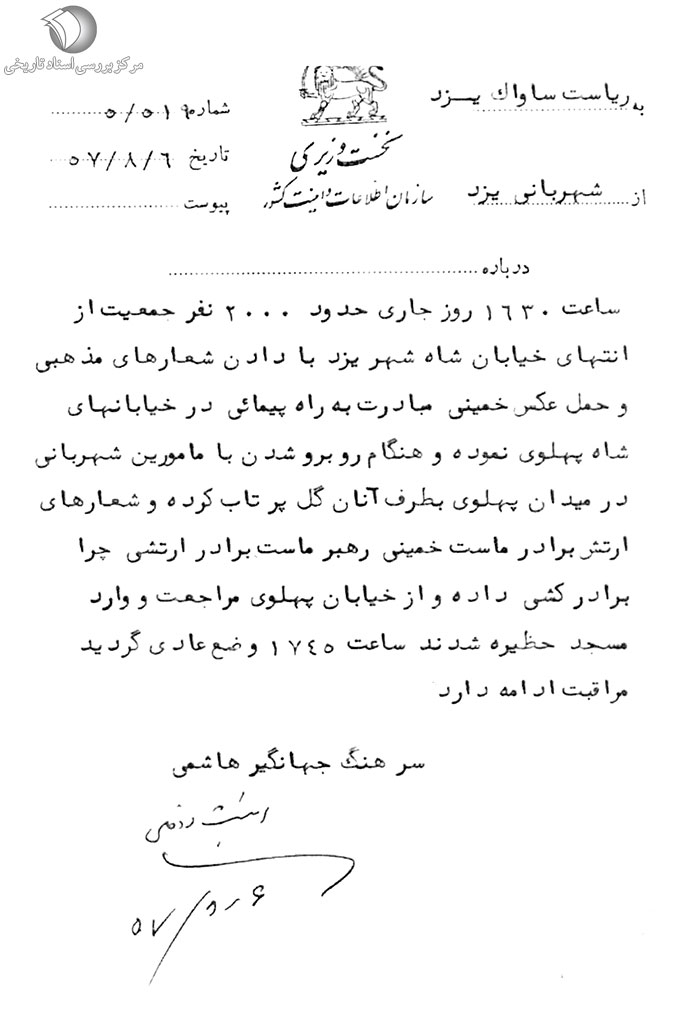 مرکز بررسی اسناد تاریخی
به ریاست ساواک یزد
شماره ۵/۵۱۹
نخست وزیری
تاریخ ۵۷/۸/۶
سازمان اطلاعات و امنیت کشور
از شهربانی یزد
پیوست
درباره
ساعت ۱٦۳۰ روز جاری حدود ۲۰۰۰ نفر جمعیت از
انتهای خیابان شاه شهر یزد با دادن شعارهای مذهبی
و حمل عکس خمینی مبادرت به راه پیمائی در خیابانهای
شاه پهلوی نموده و هنگام روبرو شدن با مامورین شهربانی
در میدان پهلوی بطرف آنان گل پرتاب کرده و شعارهای
ارتش برادر ماست خمینی رهبر ماست برادر ارتشی چرا
برادر کشی داده و از خیابان پهلوی مراجعت و وارد
مسجد حظیره شدند ساعت ۱۷٤۵ وضع عادی گردید
مراقبت ادامه دارد
سرهنگ جهانگیر هاشمی